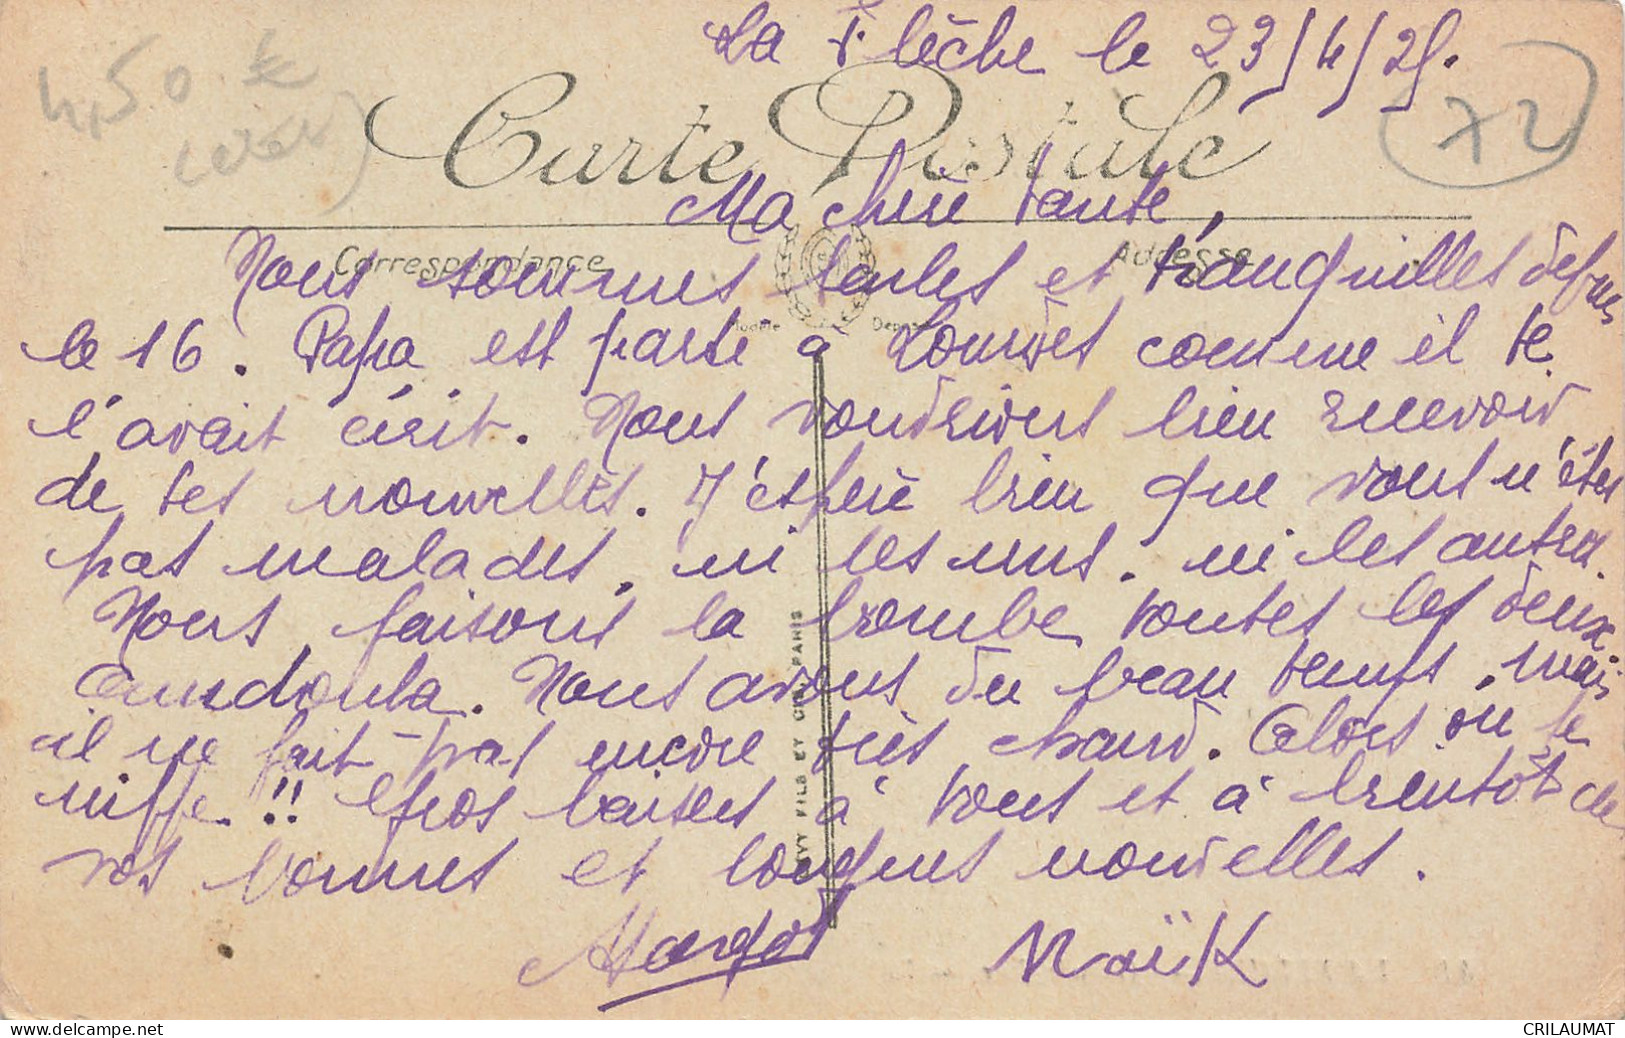 La Flèche le 23/4/25.
4,50 €
X2
Carte Postale
Ma chère tante,
Correspondance
Adresse
Nous sommes seules et tranquilles depuis
Modèle Déposé
le 16. Papa est parti à Lourdes comme il te
l'avait écrit. Nous voudrions bien recevoir
de tes nouvelles. J'espère bien que vous n'êtes
pas malades, ni les uns, ni les autres.
Nous faisons la bombe toutes les deux
Nous avons du beau temps, mais
il ne fait pas encore très chaud. Alors on se
niffe!! Gros baisers à vous et à bientôt de
vos bonnes et longues nouvelles.
LEVY FILS ET CIE PARIS
Margot Naïk
delcampe.net
CRILAUMAT